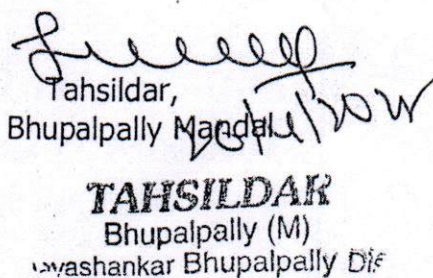 Tahsildar,
Bhupalpally Mandal
TAHSILDAR
Bhupalpally (M)
Bhupalpally Dis